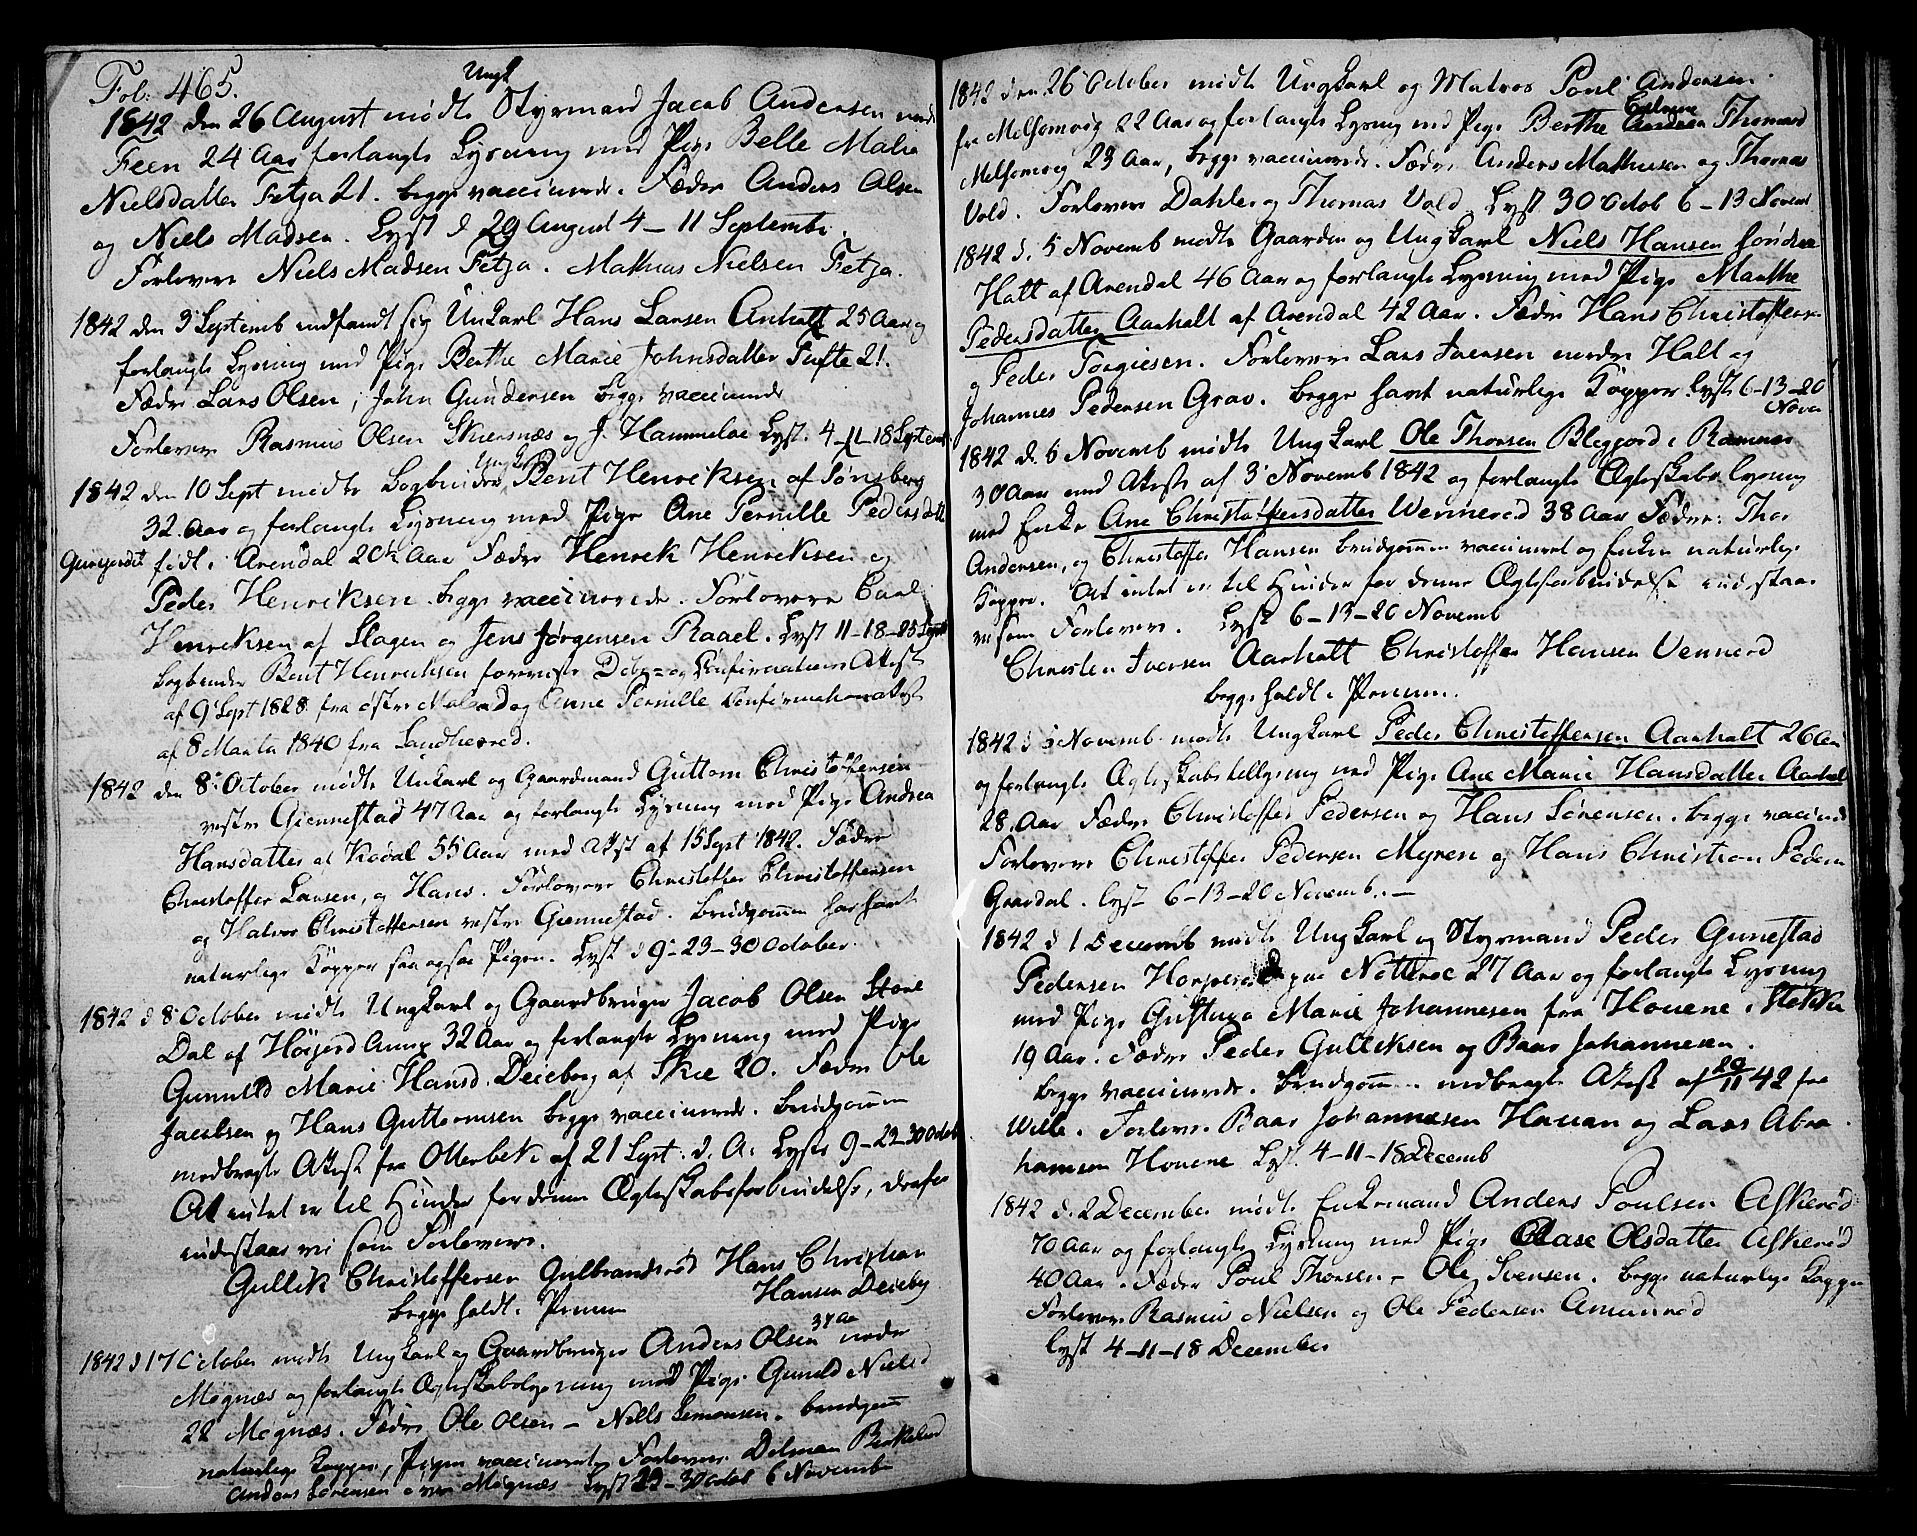 Fol: 465.
Ungk
1842 den 26 August mødte Styrmand Jacob Andersen nedre
Feen 24 Aar forlangte Lysning med Pige Belle Malia
Nielsdatter Fetja 21. begge vaccinerede. Fædre Anders Olsen
og Niels Madsen. Lyst d 29 August 4-11 Septembr.
Forlovere Niels Madsen Fetja. Mathias Nielsen Fetja.
1842 den 3 Septemb indfandt sig Unkarl Hans Larsen Anholt 25 Aar og
forlangte Lysning med Pige Berthe Marie Johnsdatter Tufte 21.
Fædre Lars Olsen, John Gundersen begge vaccinerede
Forlovere Rasmus Olsen Skiersnæs og J. Hammeloe Lyst. 4-11-18 Septemb
Ungkarl
1842 den 10 Sept mødte Bogbinder Bent Henriksen af Tønsberg
32 Aar og forlangte Lysning med Pige Ane Pernille Pedersdatt
født i Arendal 20½ Aar Fædre Henrik Henriksen og
Peder Henriksen. begge vaccinerede. Forlovere Carl
Henriksen af Slagen og Jens Jørgensen Raael. Lyst 11-18-25 Septb
Bogbinder Bent Henriksen foreviste Døbe= og Confirmations Attest
af 9 Sept 1828 fra østre Moland og Anne Pernille Confirmationsattest
af 8 Marts 1840 fra Sandherred.
1842 den 8 October mødte Unkarl og Gaardmand Guttorm Christoffersen
vestre Giennestad 47 Aar og forlangte Lysning med Pige Andrea
Hansdatter af Kodal 55 Aar med Attst af 15 Sept 1842. Fædre
Christoffer Larsen, og Hans. Forlovere Christoffer Christoffersen
og Halvor Christoffersen vestre Giennestad. Brudgommen har havt
naturlige Kopper saa ogsaa Pigen. Lyst d 9-23-30 October.
1842 d 8 October mødte Ungkarl og Gaardbruger Jacob Olsen Store
Dal af Høijord Annx 32 Aar og forlangte Lysning med Pige
Gunnild Marie Hansd. Deieberg af Skie 20. Fædre Ole
Jacobsen og Hans Guttormsen begge vaccinerede. Brudgommen
medbragte Attest fra Otterbek af 21 Sept: d. A: Lyste 9-23-30 Octob
At intet er til Hinder for denne Ægteskabsforbindelse, derfor
indestaar vi som Forlovere.
Gullik Christoffersen Gulbrandsrød Hans Christian
Hansen Deieberg
begge holdt i Pennen
37 Aa
1842 d 17 October mødte Ungkarl og Gaardbruger Anders Olsen nedre
Møgnæs og forlangte Ægteskabslysning med Pige Gunild Nielsd
22 Møgnæs. Fædre Ole Olsen - Niels Semonsen. brudgom
naturlige Kopper, Pigen vaccineret Forlovere Delman Birkeland
Anders Sørensen øvre Møgnæs Lyst 23-30 Octob 6 Novembr
1842 den 26 October mødte Ungkarl og Matros Povl Andersen
fra Melsomvig 22 Aar og forlangte Lysning med Pige Berthe Andrea Thomasd
Melsomvig 23 Aar, begge vaccinerede. Fædre Anders Mathisen og Thomas
Vold. Forlovere Dahler og Thomas Vold. Lyst 30 Octob 6-13 Novemb
1842 d. 5 Novemb mødte Gaardm og Ungkarl Niels Hansen søndre
Holt af Arendal 46 Aar og forlangte Lysning med Pige Marthe
Pedersdatter Aarholt af Arendal 42 Aar. Fædre Hans Christoffersen
og Peder Torgiesen. Forlovere Lars Iversen nordre Holt og
Johannes Pedersen Grav. begge havt naturlige Kopper. Lyst 6-13-20
Novem
1842 d. 6 Novemb mødte Ungkarl Ole Thorsen Blegjord i Ramnes
30 Aar med Attest af 3 Novemb 1842 og forlangte Ægteskabs lysning
med Enke Ane Christoffersdatter Wennerød 38 Aar Fædre: Thor
Andersen, og Christoffer Hansen brudgommen vaccineret og Enken naturlige
Kopper. At intet er til Hinder for denne Ægteforbindelse indestaar
vi som Forlovere. Lyst 6-13-20 Novemb
Christen Iversen Aarholt Christoffer Hansen Vennerød
begge holdt i Pennen.
1842 d 5 Novemb mødte Ungkarl Peder Christoffersen Aarholt 26 Aar
og forlangte Ægteskabslysning med Pige Ane Marie Hansdatter Aarholt
28. Aar Fædre Christoffer Pedersen og Hans Sørensen. begge vaccined
Forlovere Christoffer Pedersen Myren og Hans Christian Pedersen
Gravdal. lyst 6-13-20 Novemb.-
1842 d 1 Decemb mødte Ungkarl og Styrmand Peder Gunestad
Pedersen paa Nøtterøe 27 Aar og forlangte Lysning
med Pige Gustava Marie Johannesen fra Houene i Stokke
19 Aar. Fædre Peder Gulliksen og Baar Johannesen.
begge vaccinerede. Brudgom. medbragte Attest af 29/11 42 fra
Wille. Forlovere Baar Johannesen Hauan og Lars Abra
hamsen Houene Lyst. 4-11-18 Decemb
1842 d. 2 December mødte Enkemand Anders Poulsen Askerød
70 Aar og forlangte Lysning med Pige Aase Olsdatter Askerød
40 Aar. Fædre Poul Thorsen - Ole Svensen. begge naturlige Kopper
Forlovere Rasmus Nielsen og Ole Pedersen Amundrød
Lyst 4-11-18 December